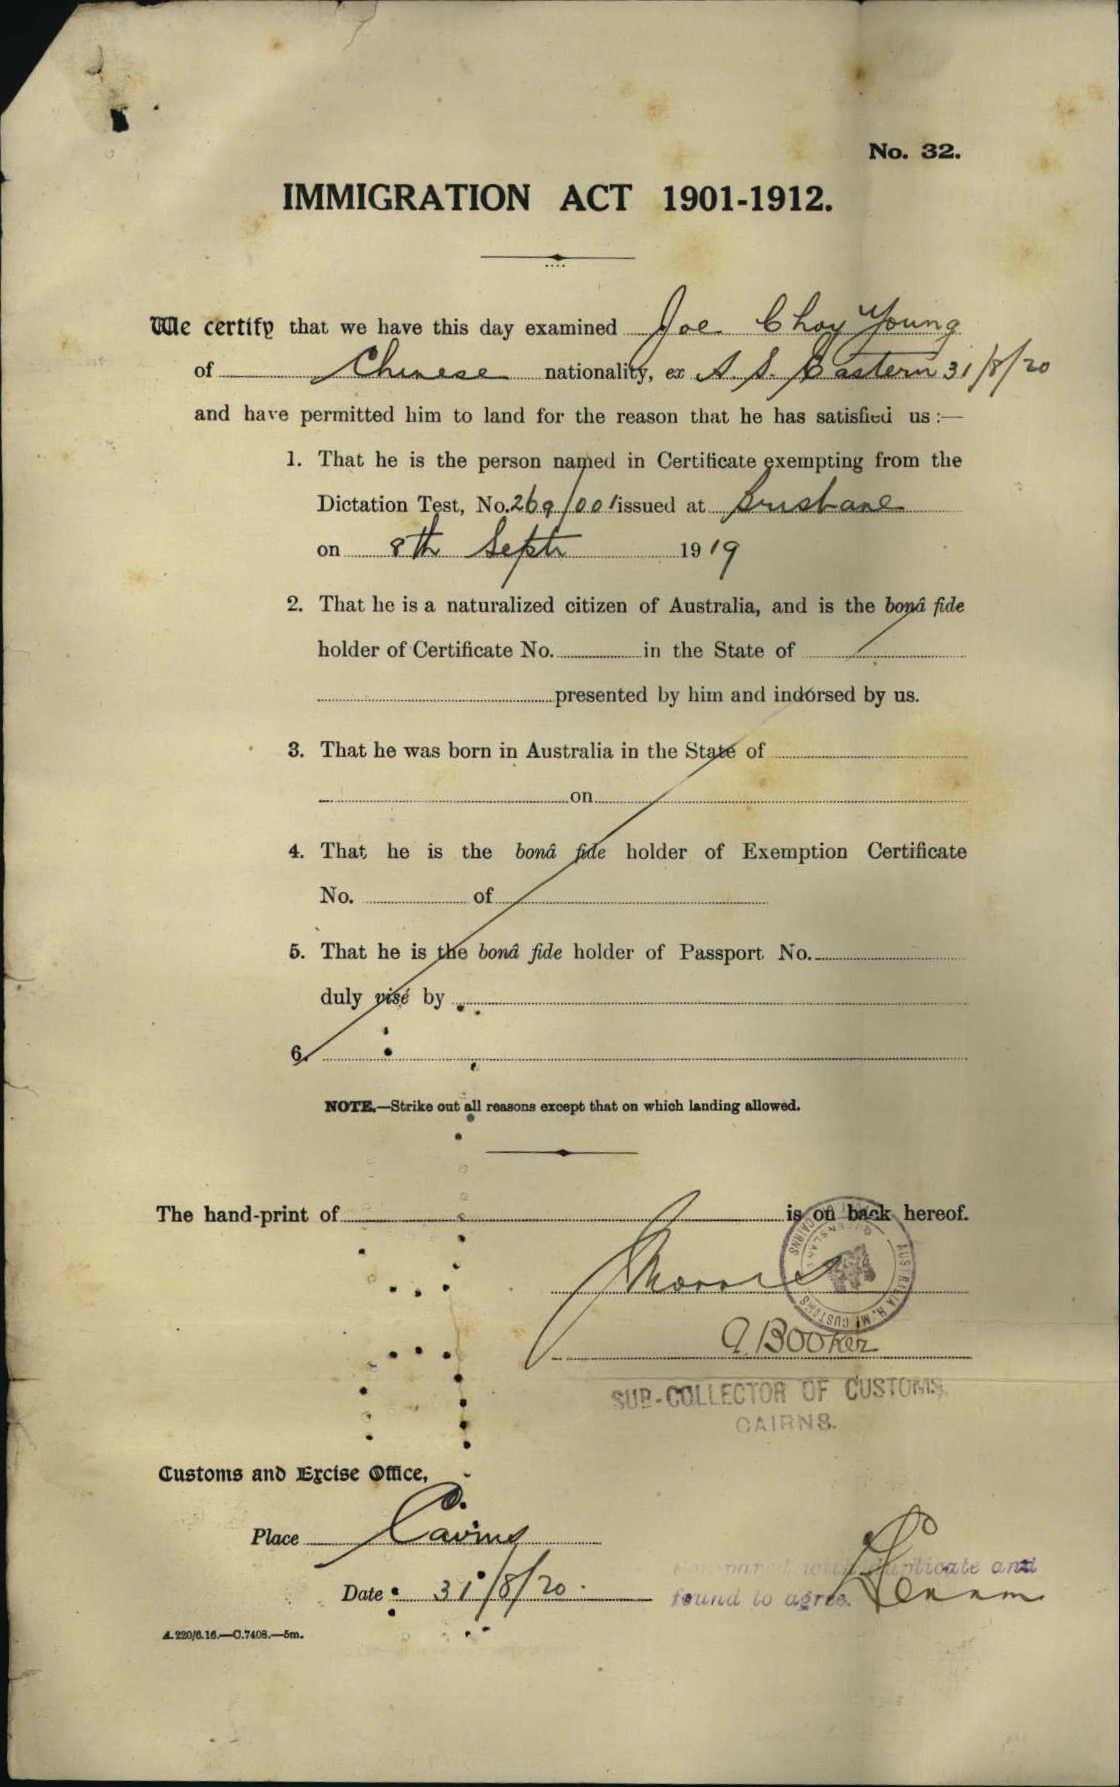 No. 32.
IMMIGRATION ACT 1901-1912.
We certify that we have this day examined Joe Choy Young
of Chinese nationality, ex S. S. Eastern 31/8/20
and have permitted him to land for the reason that he has satisfied us :—
1. That he is the person named in Certificate exempting from the
Dictation Test, No. 269/001 issued at Brisbane
on 8th Septr 1919
2. That he is a naturalized citizen of Australia, and is the bonâ fide
holder of Certificate No. in the State of
presented by him and indorsed by us.
3. That he was born in Australia in the State of
on
4. That he is the bonâ fide holder of Exemption Certificate
No. of
5. That he is the bonâ fide holder of Passport No.
duly visé by
6.
NOTE.—Strike out all reasons except that on which landing allowed.
The hand-print of is on back hereof.
A Booker
SUB-COLLECTOR OF CUSTOMS,
CAIRNS.
Customs and Excise Office,
Place Cairns
Compared with duplicate and
Date 31/8/20.
found to agree.
A.220/6.16.—C.7408.—5m.